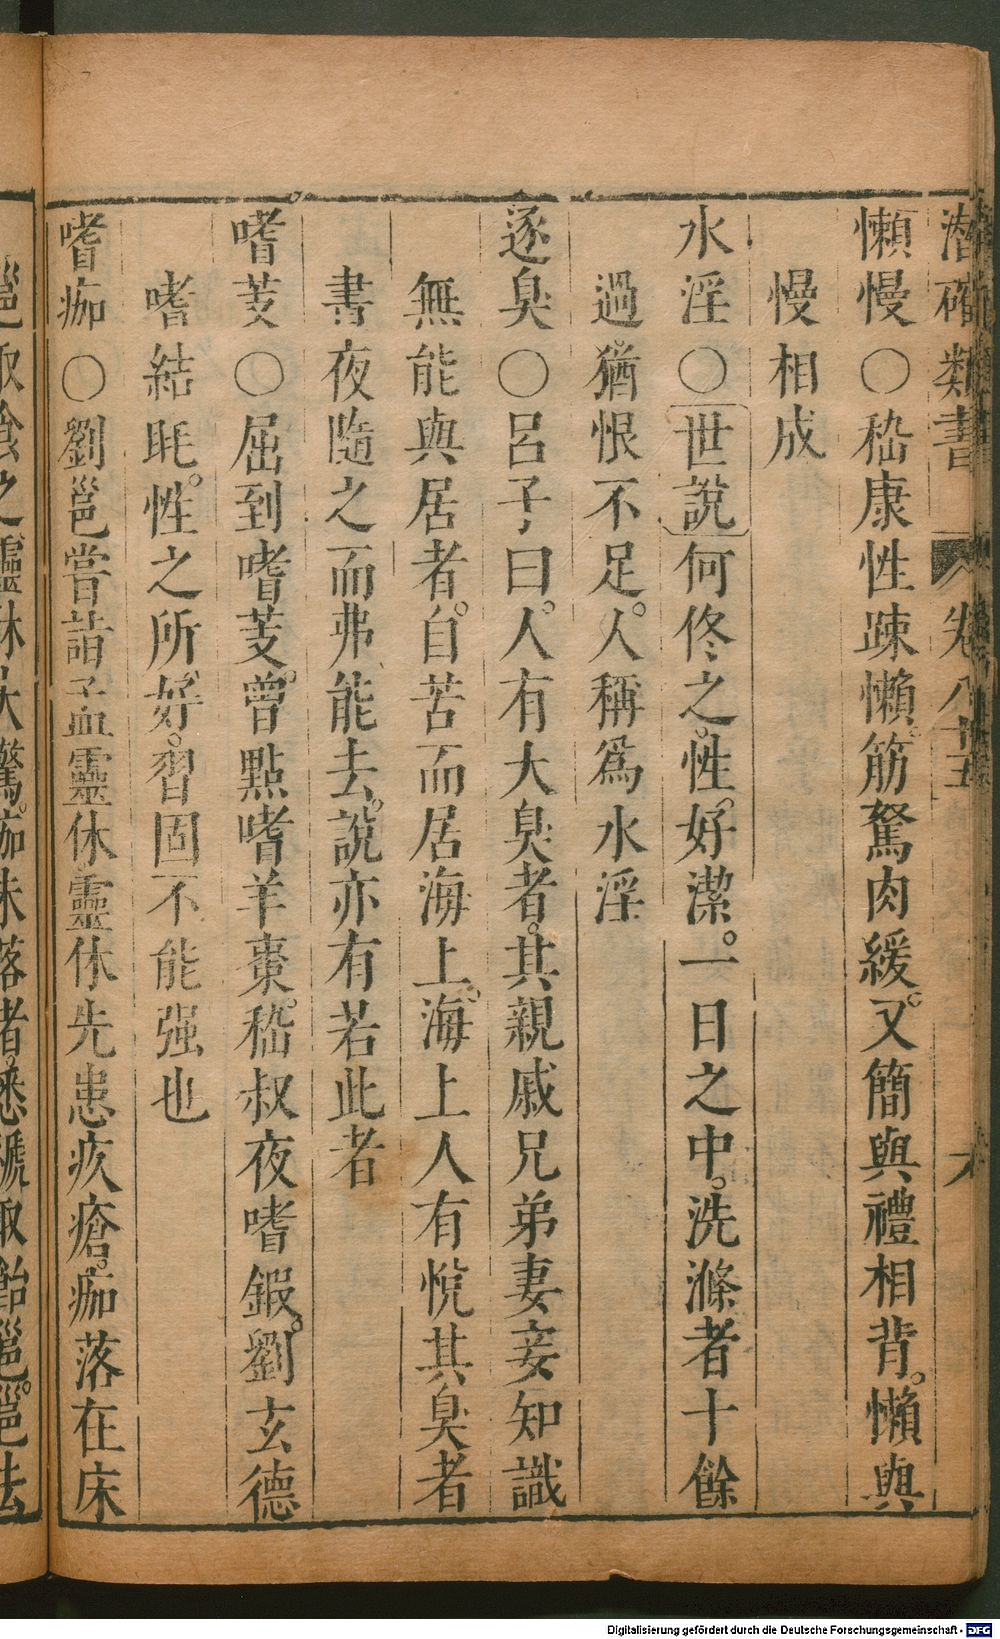 潜確類書 卷八十五
懶慢○嵇康性踈懶。筋駑肉緩。又簡與禮相背。懶與
慢相成
水淫○世說何佟之。性好潔。一日之中。洗滌者十餘
過。猶恨不足。人稱爲水淫
逐臭○呂子曰。人有大臭者。其親戚兄弟妻妾知識
無能與居者。自苦而居海上。海上人有悅其臭者
晝夜隨之而弗能去。說亦有若此者
嗜芰○屈到嗜芰。曾點嗜羊棗。嵇叔夜嗜鍛。劉玄德
嗜結毦。性之所好。習固不能强也
嗜痂○劉邕嘗詣孟靈休靈休先患疚瘡。痂落在床
邕取飡之靈休大驚。痂未落者。悉褫取飴邕。邕去
Digitalisierung gefördert durch die Deutsche Forschungsgemeinschaft - DFG